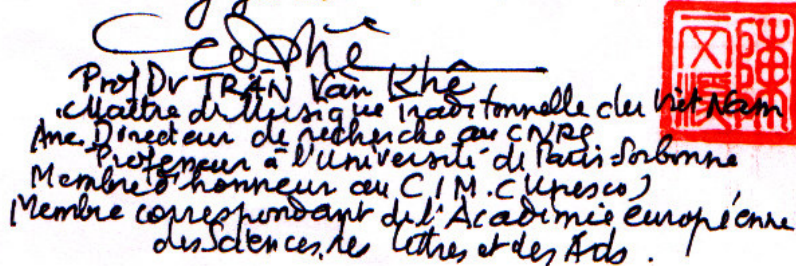 Prof Dr TRẦN Văn Khê
Maître de Musique traditionnelle du Viêt Nam
Anc. Directeur de recherche au CNRS
Professeur à l'Université de Paris-Sorbonne
Membre d'honneur au C.I.M. (Unesco)
Membre correspondant de l'Académie européenne
des Sciences, des Lettres et des Arts.
陳文